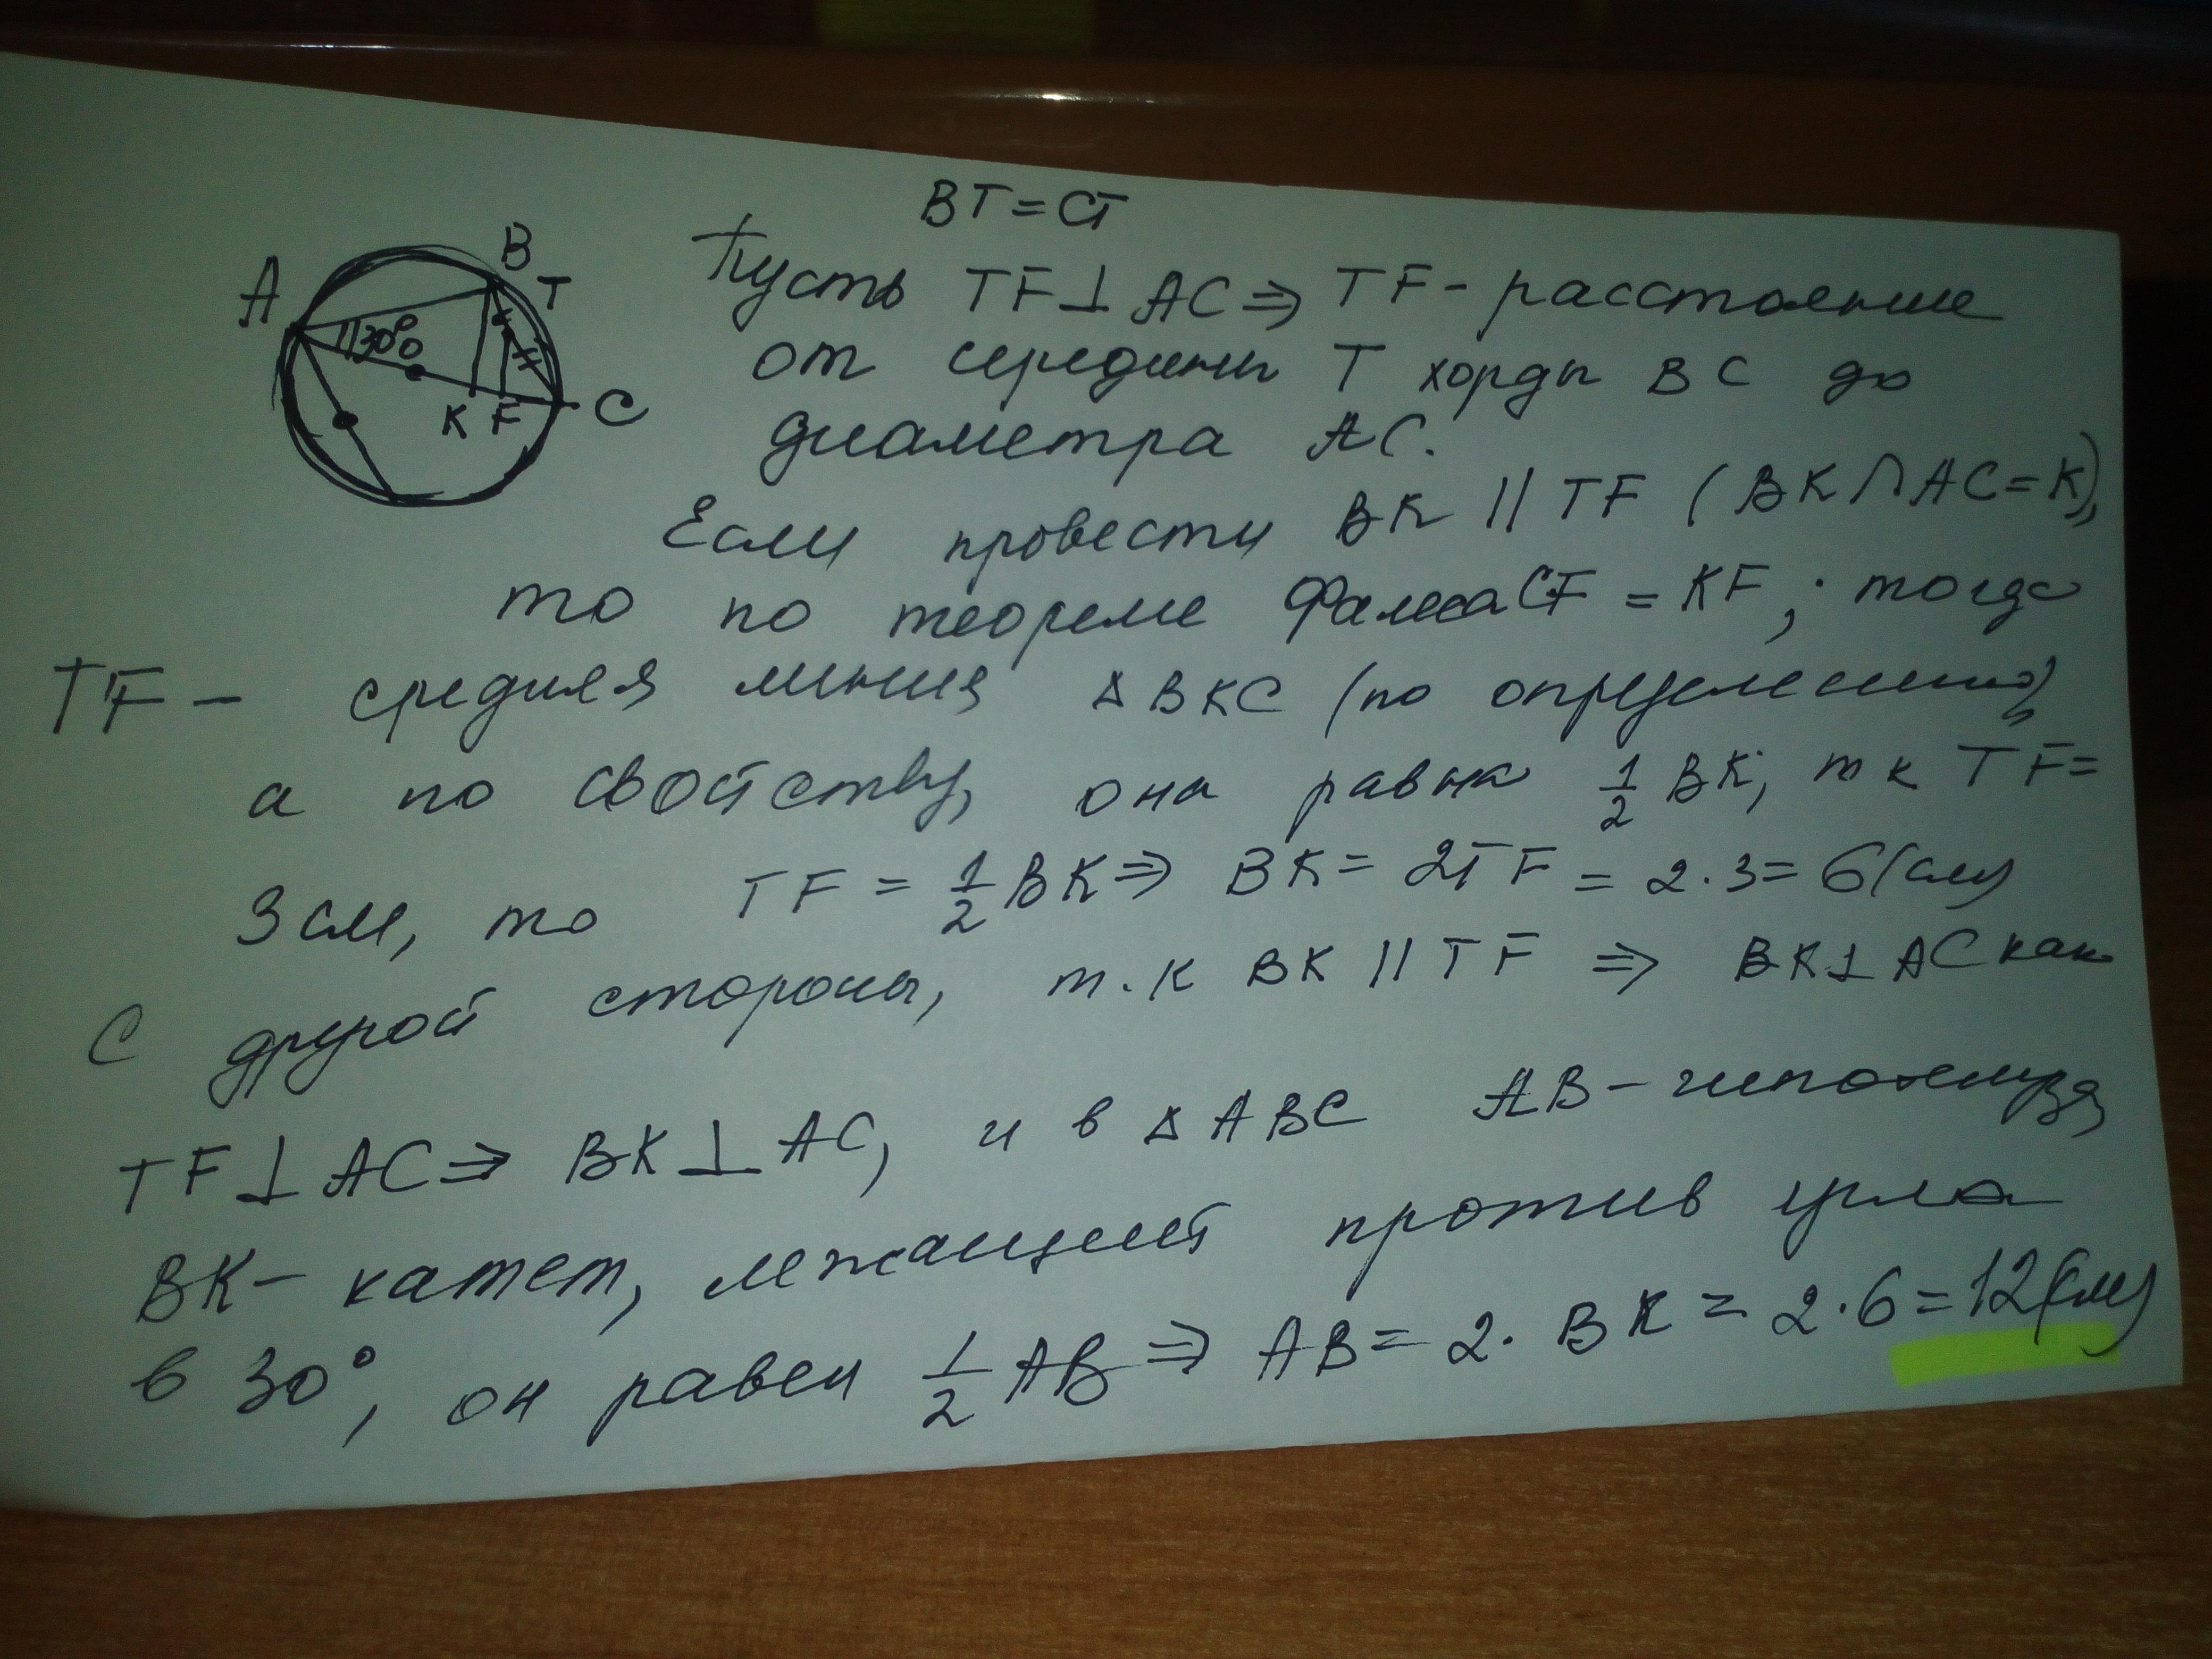 BT = CT
A
B
T
30°
O
K F C
Пусть TF ⊥ AC ⇒ TF - расстояние
от середины T хорды BC до
диаметра AC.
Если провести BK || TF (BK ∩ AC = K),
то по теореме Фалеса CF = KF ; тогда
TF - средняя линия ΔBKC (по определению),
а по свойству, она равна 1/2 BK, т к TF =
3 см, то TF = 1/2 BK ⇒ BK = 2TF = 2·3 = 6 (см)
С другой стороны, т.к BK || TF ⇒ BK ⊥ AC как
TF ⊥ AC ⇒ BK ⊥ AC, и в ΔABC AB - гипотенуза,
BK - катет, лежащий против угла
в 30°, он равен 1/2 AB ⇒ AB = 2· BK = 2·6 = 12 (см)